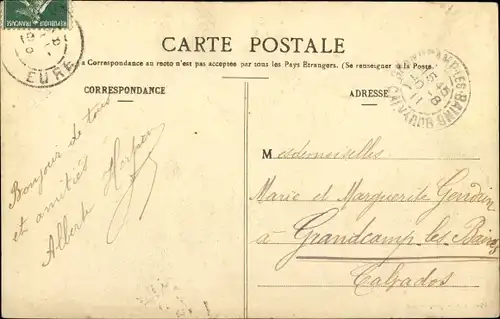 REPUBLIQUE FRANÇAISE
EURE
CARTE POSTALE
a Correspondance au recto n'est pas acceptée par tous les Pays Etrangers. (Se renseigner à la Poste.
CORRESPONDANCE
ADRESSE
GRANDCAMP-LES-BAINS
CALVADOS
Bonjour de tous
et amitiés
Alberte
Mesdemoiselles
Marie et Marguerite
à Grandcamp les Bains
Calvados